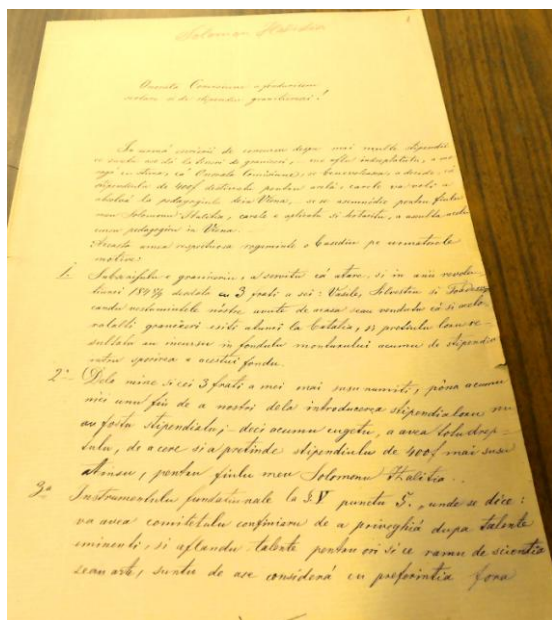 Solomon
1
Onorata Comisiune a fondurilor
scolare si de stipendii graniciaresci!
In urma scrierii de concursu despre mai multe stipendii
ce suntu sé dá la tineri de graniceri, - me aflu indreptatitu, a me
rugá cu stima, cá Onorata Comisiune, se benevoiasca, a decide, cá
stipendiulu de 400f destinatu pentru acela, carele va voi a
absolvá la pedagogiulu din Viena, - se se asemnedie pentru fiulu
meu Solomonu Halitia, carele e aplicatu si hotaritu, a asculta
cursu pedagogicu in Viena.
Acesta umea respectuosa rogaminte o basediu pe urmatoriele
motive:
1. Subscrisulu e granicieriu, a servitu cá atare, si in anii revolu-
tiunei 184 8/9 deodata cu 3 frati a sei: Vasile, Silvestru si
candu vestmintele nostre avute de acasa s'eau vendutu cá si a celo-
ralalti graniceri esiti atunci la Batalia, si pretiulu loru re-
sultatu au incursu in fondulu monturului acumu de stipendii
intru sporirea a acestui fondu.
2o Dela mine si cei 3 frati a mei mai susu numiti, pôna acumu
nici unu fiu de a nostri dela introducerea stipendialoru nu
au fostu stipendiatu; - deci acumu cugetu, a avea totu drep-
tulu, de a cere si a pretinde stipendiulu de 400f mai susu
atinsu, pentru fiulu meu Solomonu Halitia.
3o Instrumentulu fundatiunale la §.V punctu 5., unde se dice:
va avea comitetulu confiniaru de a priveghiá dupa talente
eminenti, si aflandu talente pentru ori si ce ramu de scientia
seau arte, suntu de a se considerá cu preferintia fora